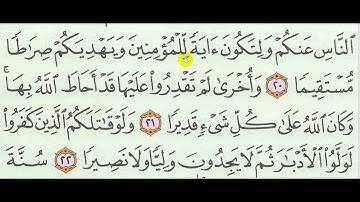 ٱلنَّاسِ عَنكُمْ وَلِتَكُونَ ءَايَةً لِّلْمُؤْمِنِينَ وَيَهْدِيَكُمْ صِرَٰطًا
مُّسْتَقِيمًا ٢٠ وَأُخْرَىٰ لَمْ تَقْدِرُوا۟ عَلَيْهَا قَدْ أَحَاطَ ٱللَّهُ بِهَا ۚ
وَكَانَ ٱللَّهُ عَلَىٰ كُلِّ شَىْءٍ قَدِيرًا ٢١ وَلَوْ قَٰتَلَكُمُ ٱلَّذِينَ كَفَرُوا۟
لَوَلَّوُا۟ ٱلْأَدْبَٰرَ ثُمَّ لَا يَجِدُونَ وَلِيًّا وَلَا نَصِيرًا ٢٢ سُنَّةَ